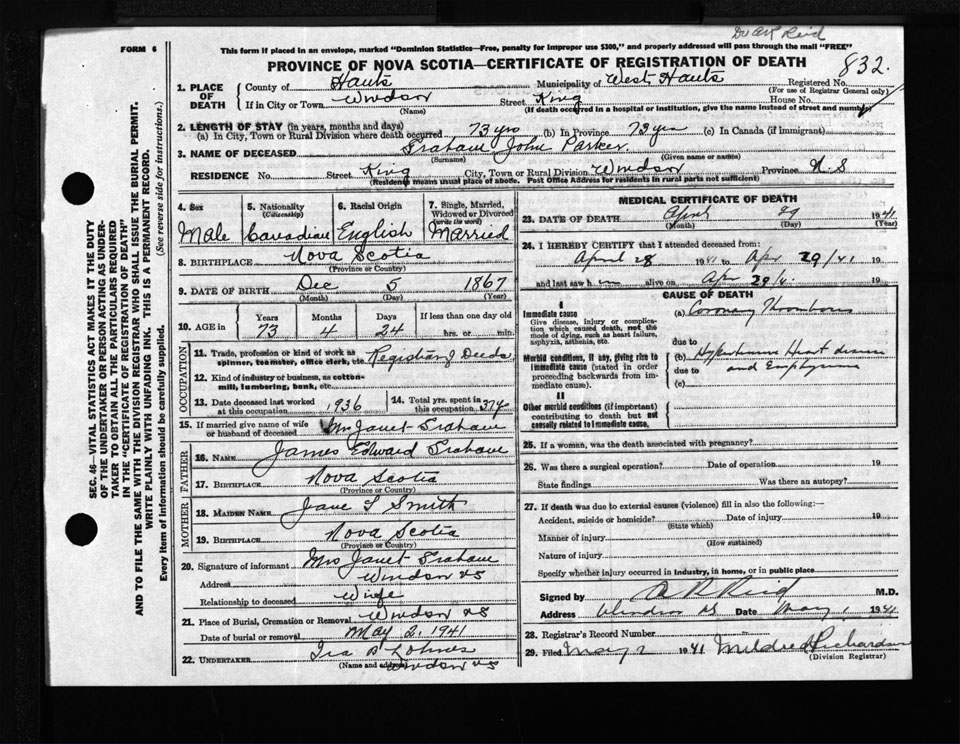 Dr A R Reid
FORM 6
This form if placed in an envelope, marked "Dominion Statistics—Free, penalty for improper use $300," and properly addressed will pass through the mail "FREE"
PROVINCE OF NOVA SCOTIA—CERTIFICATE OF REGISTRATION OF DEATH
832
1. PLACE OF DEATH
County of Hants Municipality of West Hants Registered No.
(For use of Registrar General only)
If in City or Town Windsor Street King House No.
(Name) (If death occurred in a hospital or institution, give the name instead of street and number)
2. LENGTH OF STAY (in years, months and days)
(a) In City, Town or Rural Division where death occurred 73 yrs (b) In Province 73 yrs (c) In Canada (if immigrant)
3. NAME OF DECEASED Graham John Parker
(Surname) (Given name or names)
RESIDENCE No. Street King City, Town or Rural Division Windsor Province N.S
(Residence means usual place of abode. Post Office Address for residents in rural parts not sufficient)
4. Sex 5. Nationality (Citizenship) 6. Racial Origin 7. Single, Married, Widowed or Divorced (write the word)
Male Canadian English Married
8. BIRTHPLACE Nova Scotia
(Province or Country)
9. DATE OF BIRTH Dec 5 1867
(Month) (Day) (Year)
10. AGE in Years Months Days If less than one day old
73 4 24 hrs. or min.
OCCUPATION
11. Trade, profession or kind of work as spinner, teamster, office clerk, etc. Registrar of Deeds
12. Kind of industry or business, as cotton-mill, lumbering, bank, etc.
13. Date deceased last worked at this occupation 1936 14. Total yrs. spent in this occupation 37 y
15. If married give name of wife or husband of deceased Mrs Janet Graham
FATHER
16. NAME James Edward Graham
17. BIRTHPLACE Nova Scotia
(Province or Country)
MOTHER
18. MAIDEN NAME Jane S Smith
19. BIRTHPLACE Nova Scotia
(Province or Country)
20. Signature of informant Mrs Janet Graham
Address Windsor NS
Relationship to deceased Wife
21. Place of Burial, Cremation or Removal Windsor NS
Date of burial or removal May 2, 1941
22. UNDERTAKER Ira B Lohnes
(Name and address) Windsor NS
MEDICAL CERTIFICATE OF DEATH
23. DATE OF DEATH April 29 1941
(Month) (Day) (Year)
24. I HEREBY CERTIFY that I attended deceased from:
April 28 1941 to Apr 29/41 19
and last saw h im alive on Apr 29/41 19
CAUSE OF DEATH
I
Immediate cause
Give disease, injury or complication which caused death, not the mode of dying, such as heart failure, asphyxia, asthenia, etc.
(a) Coronary Thrombosis
due to
Morbid conditions, if any, giving rise to immediate cause (stated in order proceeding backwards from immediate cause).
(b) Hypertensive Heart disease
due to and Emphysema
(c)
II
Other morbid conditions (if important) contributing to death but not causally related to immediate cause.
25. If a woman, was the death associated with pregnancy?
26. Was there a surgical operation? Date of operation 19
State findings Was there an autopsy?
27. If death was due to external causes (violence) fill in also the following:—
Accident, suicide or homicide? Date of injury 19
(State which)
Manner of injury
(How sustained)
Nature of injury
Specify whether injury occurred in industry, in home, or in public place
Signed by A R Reid M.D.
Address Windsor NS Date May 1 1941
28. Registrar's Record Number
29. Filed May 2 1941 Mildred Richardson
(Division Registrar)
SEC. 46—VITAL STATISTICS ACT MAKES IT THE DUTY
OF THE UNDERTAKER OR PERSON ACTING AS UNDER-
TAKER TO OBTAIN ALL THE PARTICULARS REQUIRED
IN THE "CERTIFICATE OF REGISTRATION OF DEATH"
AND TO FILE THE SAME WITH THE DIVISION REGISTRAR WHO SHALL ISSUE THE BURIAL PERMIT.
WRITE PLAINLY WITH UNFADING INK. THIS IS A PERMANENT RECORD.
Every item of information should be carefully supplied. (See reverse side for instructions.)